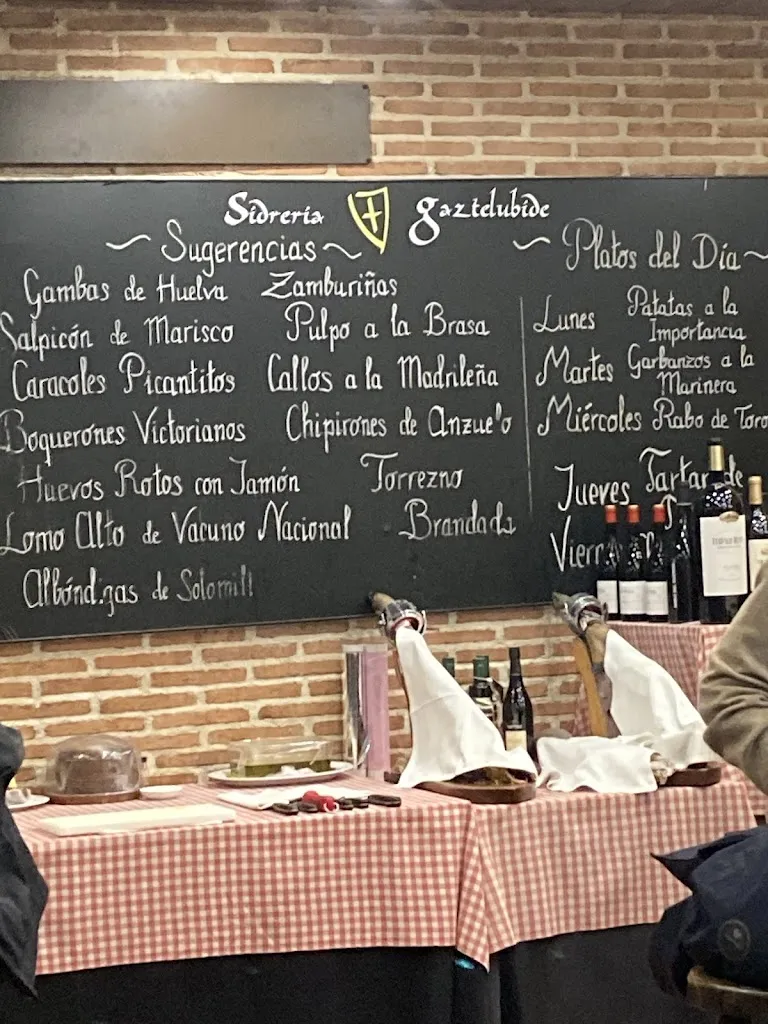 Sidrería gaztelubide
Sugerencias
Gambas de Huelva Zamburiñas
Salpicón de Marisco Pulpo a la Brasa
Caracoles Picantitos Callos a la Madrileña
Boquerones Victorianos Chipirones de Anzuelo
Huevos Rotos con Jamón Torrezno
Lomo Alto de Vacuno Nacional Brandada
Albóndigas de Solomill
Platos del Día
Lunes Patatas a la
Importancia
Martes Garbanzos a la
Marinera
Miércoles Rabo de Toro
Jueves Tartar de
Viern